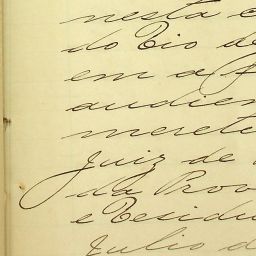 nesta c
do Rio de
em a p
audien
mereti
Juiz de
da Prov
e Residu
Julio d